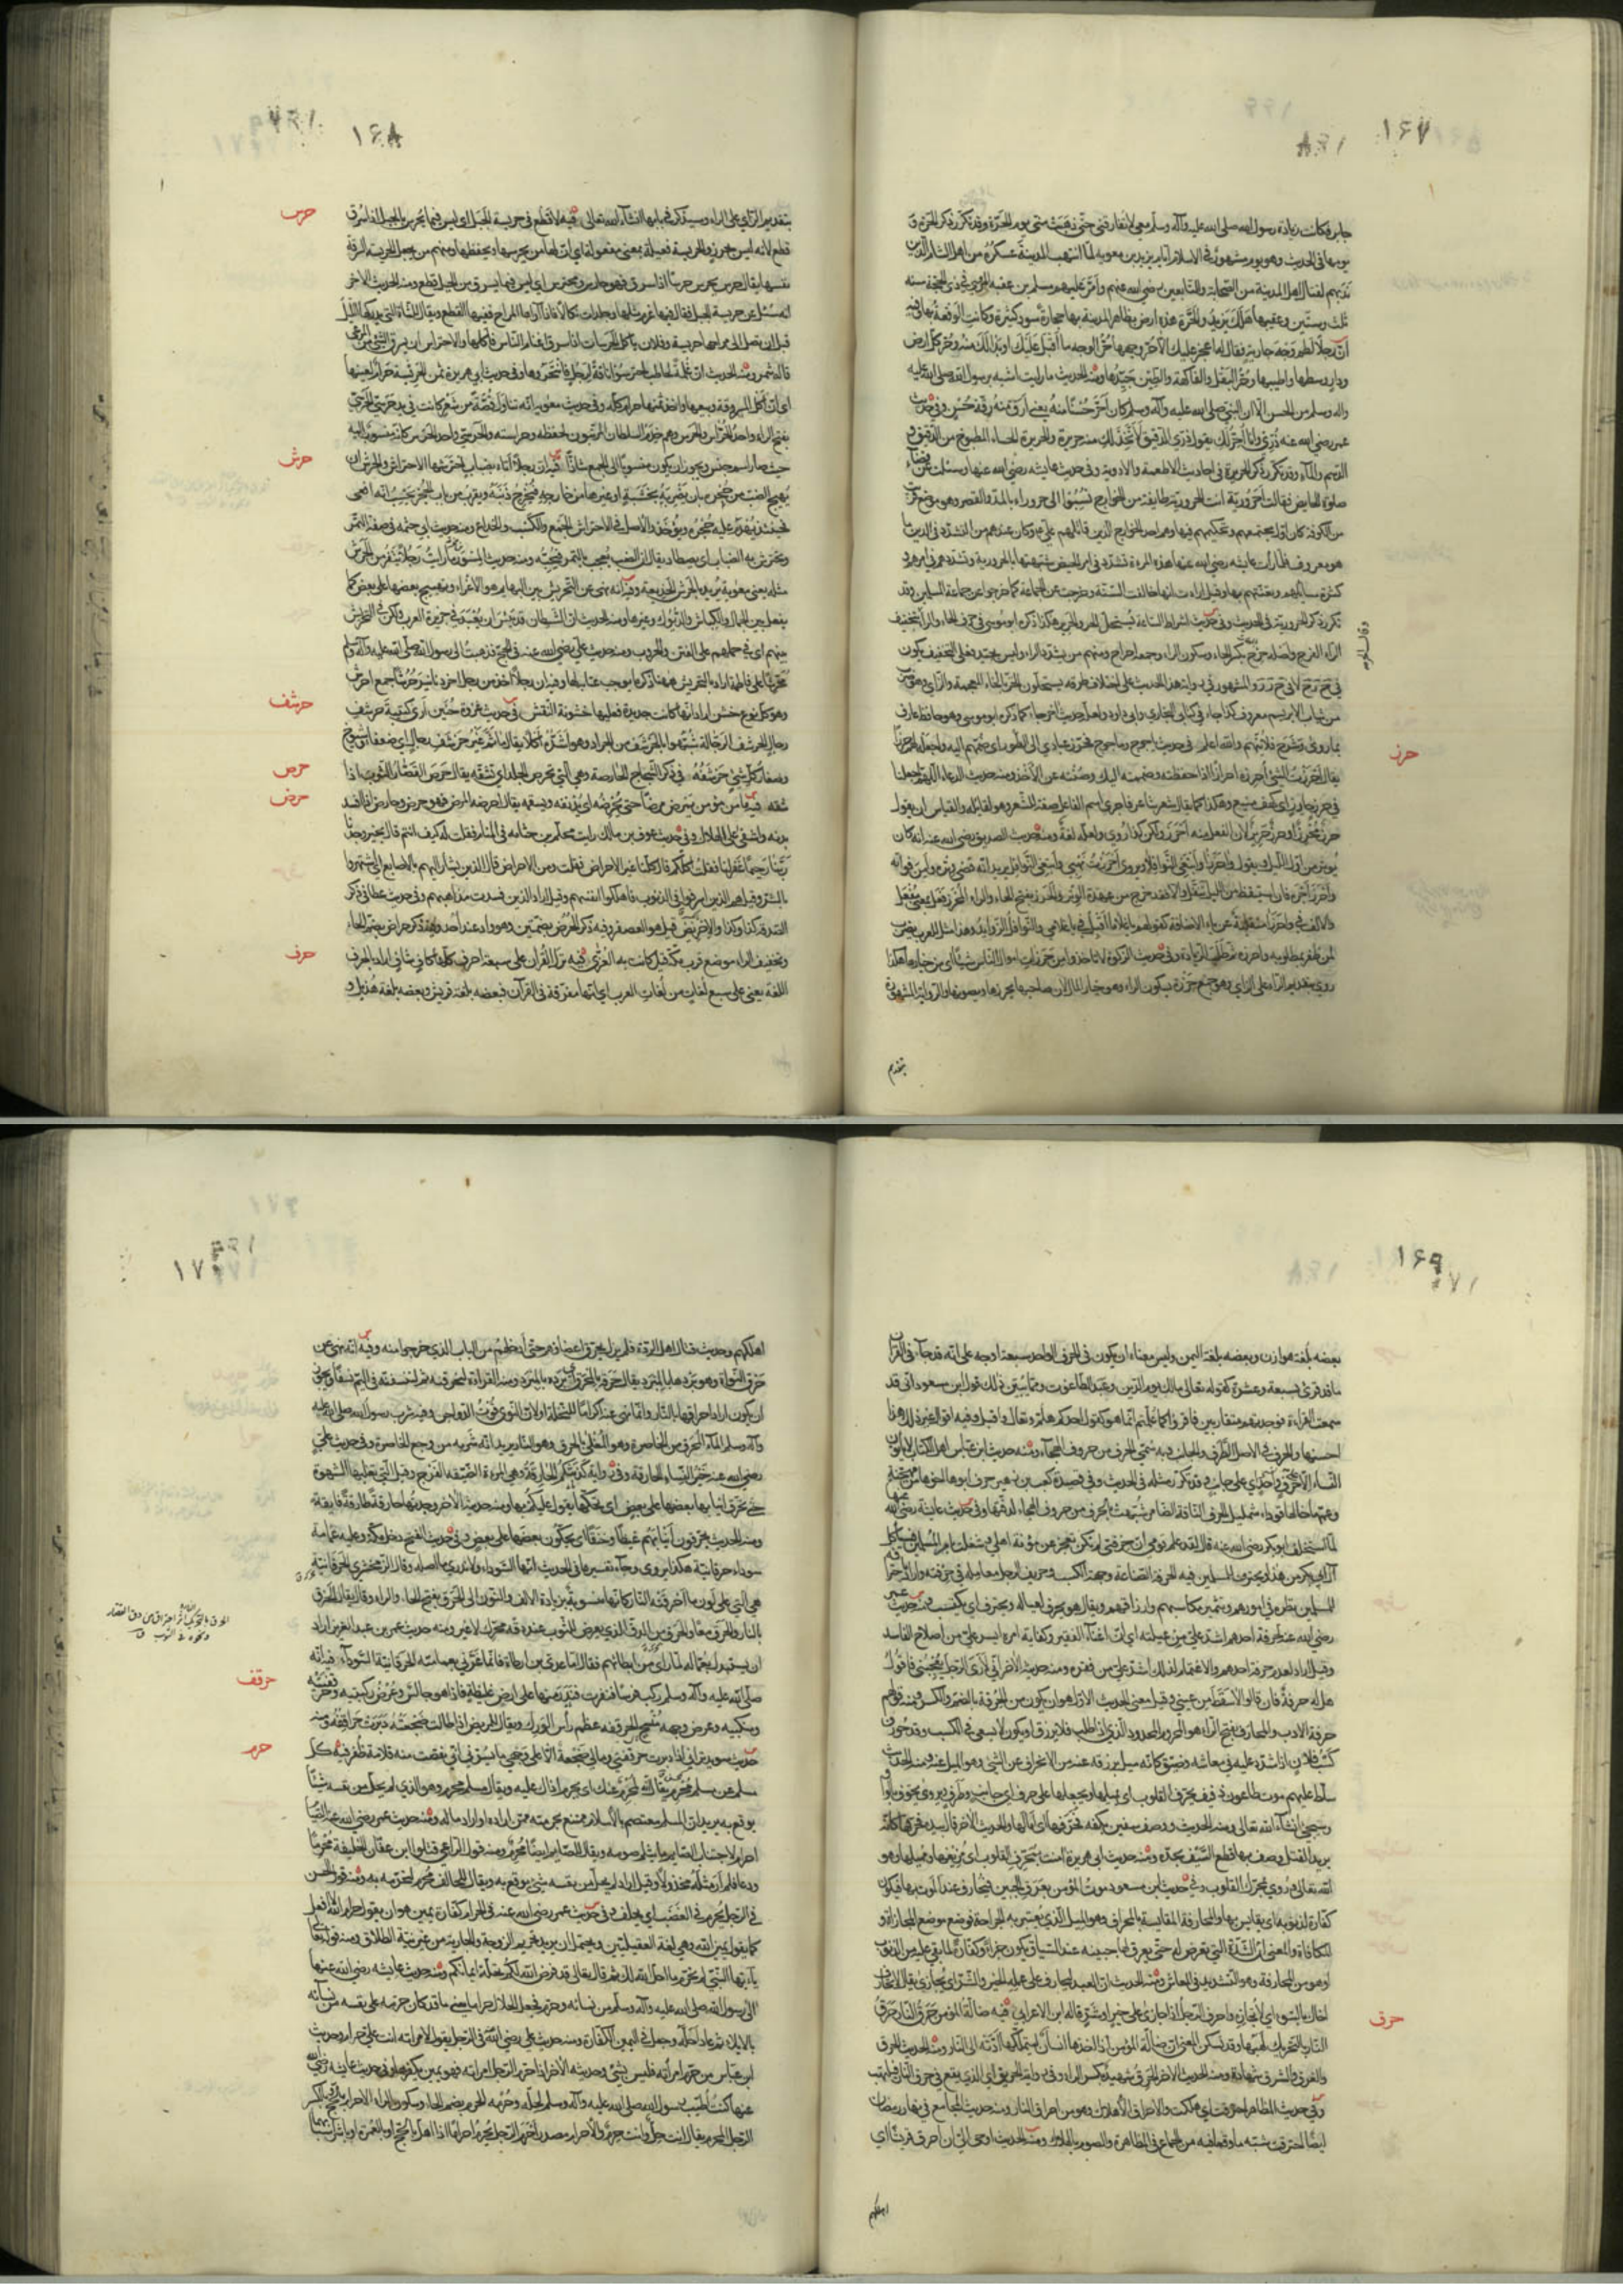 ١٦٧
جابر فكانت زيادة رسول الله صلى الله عليه وآله وسلم معي لا تفارقني حتى ذهبت مني يوم الحرة وقد تكرر ذكر الحرة و
يومها في الحديث وهو يوم مشهور في الاسلام ايام يزيد بن معوية لما انتهب المدينة عسكره من اهل الشام الذين
ندبهم لقتال اهل المدينة من الصحابة والتابعين رضي الله عنهم وامر عليهم مسلم بن عقبة المري في ذي الحجة سنة
ثلث وستين وعقيبها هلك يزيد والحرة هذه ارض بظاهر المدينة بها حجارة سود كثيرة وكانت الوقعة بها فيه
ان رجلا لطم وجه جارية فقال له اعجز عليك الا حر وجهها حر الوجه ما اقبل عليك وبدا لك منه وحر كل ارض
ودار وسطها واطيبها وحر البقل والفاكهة والطين جيدها ومنه الحديث ما رايت اشبه برسول الله صلى الله عليه
وآله وسلم من الحسن الا ان النبي صلى الله عليه وآله وسلم كان احر حسنا منه يعني ارق منه رقة حسن وفي حديث
عمر رضي الله عنه ذري وانا احر لك يقول ذري الدقيق لاتخذ لك منه حريرة والحريرة الحساء المطبوخ من الدقيق و
الدسم والماء وقد تكرر ذكر الحريرة في احاديث الاطعمة والادوية وفي حديث عايشة رضي الله عنها وسئلت عن قضاء
صلوة الحايض فقالت احرورية انت الحرورية طايفة من الخوارج نسبوا الى حروراء بالمد والقصر وهو موضع قريب
من الكوفة كان اول مجتمعهم وتحكيمهم فيها وهم احد الخوارج الذين قاتلهم علي وكان عندهم من التشدد في الدين ما
هو معروف فلما رات عايشة رضي الله عنها هذه المرءة تشدد في امر الحيض شبهتها بالحرورية وتشددهم في امرهم و
كثرة مسايلهم وتعنتهم بها وقيل ارادت انها خالفت السنة وخرجت عن الجماعة كما خرجوا عن جماعة المسلمين وقد
تكرر ذكر الحرورية في الحديث وفي حديث اشراط الساعة يستحل الحر والحرير هكذا ذكره ابو موسى في حرف الحاء والراء بتخفيف
الراء الفرج واصله حرح بكسر الحاء وسكون الراء وجمعه احراح ومنهم من يشدد الراء وليس بجيد فعلى التخفيف يكون
في ح ر ح لا في ح ر ر والمشهور في رواية هذا الحديث على اختلاف طرقه يستحلون الخز بالخاء المعجمة والزاي وهو ضرب
من ثياب الابريسم معروف كذا جاء في كتابي البخاري وابي داود ولعله حديث آخر جاء كما ذكره ابو موسى وهو حافظ عارف
بما روى وشرح فلا يتهم والله اعلم
حرز
في حديث ياجوج وماجوج فحرز عبادي الى الطور اي ضمهم اليه واجعله لهم حرزا
يقال احرزت الشيء احرزه احرازا اذا حفظته وضممته اليك وصنته عن الاخذ ومنه حديث الدعاء اللهم اجعلنا
في حرز حارز اي كهف منيع وهكذا كما يقال شعر شاعر فاجرى اسم الفاعل صفة للشعر وهو لقائله والقياس ان يقول
حرز محرز او حرز حريز لان الفعل منه احرز ولكن كذا روي ولعله لغة ومنه حديث الصديق رضي الله عنه انه كان
يوتر من اول الليل ويقول واحرزا وابتغي النوافلا ويروى احرزت نهبي وابتغي النوافل يريد انه قضى وتره وامن فواته
واحرز اجره فان استيقظ من الليل تنفل والا فقد خرج من عهدة الوتر والحرز بفتح الحاء والراء المحرز فعل بمعنى مفعل
والالف في واحرزا منقلبة عن ياء الاضافة كقولهم يا غلاما اقبل في يا غلامي والنوافل الزوايد وهذا مثل للعرب يضرب
لمن ظفر بمطلوبه واحرزه ثم طلب الزيادة وفي حديث الزكوة لا تاخذوا من حرزات اموال الناس شيئا اي من خيارها هكذا
روي بتقديم الراء على الزاي وهو جمع حرزة بسكون الراء وهو خيار المال لان صاحبها يحرزها ويصونها والرواية المشهورة
بتقديم
١٦٨
بتقديم الزاي على الراء وسيذكر في بابها انشاء الله تعالى
حرس
فيه لا قطع في حريسة الجبل اي ليس فيما يحرس بالجبل اذا سرق
قطع لانه ليس بحرز والحريسة فعيلة بمعنى مفعولة اي ان لها من يحرسها ويحفظها ومنهم من يجعل الحريسة السرقة
نفسها يقال حرس يحرس حرسا اذا سرق فهو حارس ومحترس اي ليس فيما يسرق من الجبل قطع ومنه الحديث الآخر
انه سئل عن حريسة الجبل فقال فيها غرم مثلها وجلدات نكالا فاذا آواها المراح ففيها القطع ويقال للشاة التي يدركها الليل
قبل ان تصل الى مراحها حريسة وفلان ياكل الحريسات اذا سرق اغنام الناس فاكلها والاحتراس ان يسرق الشيء من المرعى
قاله شمر ومنه الحديث ان غلمة لحاطب احترسوا ناقة لرجل فانتحروها وفي حديث ابي هريرة ثمن الحريسة حرام لعينها
اي ان اكل المسروقة وبيعها واخذ ثمنها حرام كله وفي حديث معوية انه تناول قصة من شعر كانت في يد حرسي الحرسي
بفتح الراء واحد الحراس والحرس وهم خدم السلطان المرتبون لحفظه وحراسته والحرسي واحد الحرس كانه منسوب اليه
حيث صار اسم جنس ويجوز ان يكون منسوبا الى الجمع شاذا
حرش
فيه ان رجلا اتاه بضباب احترشها الاحتراش والحرش ان
يهيج الضب من جحره بان يضربه بخشبة او غيرها من خارجه فيخرج ذنبه ويقرب من باب الجحر يحسب انه افعى
فحينئذ يهدم عليه جحره ويؤخذ والاصل في الاحتراش الجمع والكسب والخداع ومنه حديث ابي حثمة في صفة التمر
وتحترش به الضباب اي تصطاد يقال ان الضب يعجب بالتمر فيحبه ومنه حديث المسور ما رايت رجلا ينفر من الحرش
مثله يعني معوية يريد بالحرش الخديعة وفيه انه نهى عن التحريش بين البهايم هو الاغراء وتهييج بعضها على بعض كما
يفعل بين الجمال والكباش والديوك وغيرها ومنه الحديث ان الشيطان قد يئس ان يعبد في جزيرة العرب ولكن في التحريش
بينهم اي في حملهم على الفتن والحروب ومنه حديث علي رضي الله عنه في الحج فذهبت الى رسول الله صلى الله عليه وآله وسلم
محرشا على فاطمة اراد بالتحريش ههنا ذكر ما يوجب عتابه لها وفيه ان رجلا اخذ من رجل آخر دنانير حرشا جمع احرش
وهو كل نوع خشن اراد انها كانت جديدة فعليها خشونة النقش
حرشف
في حديث غزوة حنين ارى كتيبة حرشف
رجال الحرشف الرجالة شبهوا بالحرشف من الجراد وهو اشده اكلا يقال ما ثم غير حرشف رجال اي ضعفاء شيوخ
وصغار كل شيء حرشفه
حرص
في ذكر الشجاج الحارصة وهي التي تحرص الجلد اي تشقه يقال حرص القصار الثوب اذا
شقه
حرض
فيه ما من مؤمن يمرض مرضا حتى يحرضه اي يدنفه ويسقمه يقال احرضه المرض فهو حرض وحارض اذا افسد
بدنه واشفى على الهلاك وفي حديث عوف بن مالك رايت محلم بن جثامة في المنام فقلت له كيف انتم قال بخير وجدنا
ربنا رحيما غفر لنا فقلت لكلكم قال لكلنا غير الاحراض فقلت ومن الاحراض قال الذين يشار اليهم بالاصابع اي اشتهروا
بالشر وقيل هم الذين اسرفوا في الذنوب فاهلكوا انفسهم وقيل اراد الذين فسدت مذاهبهم وفي حديث عطاء في ذكر
الصدقة كذا وكذا والاحريض قيل هو العصفر وفيه ذكر الحرض بضمتين وهو واد عند احد وفيه ذكر حراض بضم الحاء
وتخفيف الراء موضع قرب مكة قيل كانت به العزى
حرف
فيه نزل القرآن على سبعة احرف كلها كاف شاف اراد بالحرف
اللغة يعني على سبع لغات من لغات العرب اي انها مفرقة في القرآن فبعضه بلغة قريش وبعضه بلغة هذيل و
١٦٩
بعضه بلغة هوازن وبعضه بلغة اليمن وليس معناه ان يكون في الحرف الواحد سبعة اوجه على انه قد جاء في القرآن
ما قد قرئ بسبعة وعشرة كقوله تعالى مالك يوم الدين وعبد الطاغوت ومما يبين ذلك قول ابن مسعود اني قد
سمعت القراءة فوجدتهم متقاربين فاقرؤا كما علمتم انما هو كقول احدكم هلم وتعال واقبل وفيه اقوال غير ذلك هذا
احسنها والحرف في الاصل الطرف والجانب وبه سمي الحرف من حروف الهجاء ومنه حديث ابن عباس اهل الكتاب لا ياتون
النساء الا على حرف اي على جانب وقد تكرر مثله في الحديث وفي قصيدة كعب بن زهير حرف ابوها اخوها من مهجنة
وعمها خالها قوداء شمليل الحرف الناقة الضامر شبهت بالحرف من حروف الهجاء لدقتها وفي حديث عايشة رضي الله عنها
لما استخلف ابو بكر رضي الله عنه قال لقد علم قومي ان حرفتي لم تكن تعجز عن مؤنة اهلي وشغلت بامر المسلمين فسياكل
آل ابي بكر من هذا ويحترف للمسلمين فيه الحرفة الصناعة وجهة الكسب وحريف الرجل معامله في حرفته واراد باحترافه
للمسلمين نظره في امورهم وتثمير مكاسبهم وارزاقهم ويقال هو يحرف لعياله ويحترف اي يكتسب ومنه حديث عمر
رضي الله عنه لحرفة احدهم اشد علي من عيلته اي ان اغناء الفقير وكفايته ايسر علي من اصلاح الفاسد
وقيل اراد لعدم حرفة احدهم والاغتمام لذلك اشد علي من فقره ومنه حديثه الآخر اني لارى الرجل يعجبني فاقول
هل له حرفة فان قالوا لا سقط من عيني وقيل معنى الحديث الاول هو ان يكون من الحرفة بالضم والكسر ومنه قولهم
حرفة الادب والمحارف بفتح الراء هو المحروم المحدود الذي اذا طلب فلا يرزق او يكون لا يسعى في الكسب وقد حورف
كسب فلان اذا شدد عليه في معاشه وضيق كانه ميل برزقه عنه من الانحراف عن الشيء وهو الميل عنه ومنه الحديث
سلط عليهم موت طاعون ذفيف يحرف القلوب اي يميلها ويجعلها على حرف اي جانب وطرف ويروى يحوف بالواو
وسيجيء انشاء الله تعالى ومنه الحديث ووصف سفين بكفه فحرفها اي امالها والحديث الآخر وقال بيده فحرفها كانه
يريد القتل ووصف بها قطع السيف بحده ومنه حديث ابي هريرة آمنت بمحرف القلوب اي مزيغها ومميلها وهو
الله تعالى وروي محرك القلوب وفي حديث ابن مسعود موت المؤمن بعرق الجبين فيحارف عند الموت بها فيكون
كفارة لذنوبه اي يقايس بها والمحارفة المقايسة بالمحراف وهو الميل الذي يختبر به الجراحة فوضع موضع المجازاة و
المكافاة والمعنى ان الشدة التي تعرض له حتى يعرق لها جبينه عند السياق يكون جزاء وكفارة لما بقي عليه من الذنوب
او هو من المحارفة وهو التشديد في المعاش ومنه الحديث ان العبد ليحارف على عمله الخير والشر اي يجازى يقال لا تحارف
اخاك بالسوء اي لا تجازه واحرف الرجل اذا جازى على خير او شر قاله ابن الاعرابي
حرق
فيه ضالة المؤمن حرق النار حرق
النار بالتحريك لهبها وقد يسكن المعنى ان ضالة المؤمن اذا اخذها انسان ليتملكها ادته الى النار ومنه الحديث الحرق
والغرق والشرق شهادة ومنه الحديث الآخر الحرق شهيد بكسر الراء وفي رواية الحريق اي الذي يقع في حرق النار فيلتهب
وفي حديث المظاهر احترقت اي هلكت والاحراق الاهلاك وهو من احراق النار ومنه حديث المجامع في نهار رمضان
ايضا احترقت شبه ما وقعا فيه من الجماع في المظاهرة والصوم بالهلاك ومنه الحديث اوحى الي ان احرق قريشا اي
اهلكهم
١٧٠
اهلكهم وحديث قتال اهل الردة فلم يزل يحرق اعضاءهم حتى ادخلهم من الباب الذي خرجوا منه وفيه انه نهى عن
حرق النواة وهو بردها بالمبرد يقال حرقه بالمحرق اي برده بالمبرد ومنه القراءة لنحرقنه ثم لننسفنه في اليم نسفا ويجوز
ان يكون اراد احراقها بالنار وانما نهى عنه اكراما للنخلة او لان النوى قوت الدواجن وفيه شرب رسول الله صلى الله عليه
وآله وسلم الماء المحرق من الخاصرة وهو المغلى بالحرق وهو النار يريد انه شربه من وجع الخاصرة وفي حديث علي
رضي الله عنه خير النساء الحارقة وفي رواية كذبتكم الحارقة وهي المرءة الضيقة الفرج وقيل التي تغلبها الشهوة
حتى تحرق انيابها بعضها على بعض اي تحكها يقول عليكم بها ومنه حديثه الآخر وجدتها حارقة طارقة فايقة
ومنه الحديث يحرقون انيابهم غيظا وحنقا اي يحكون بعضها على بعض وفي حديث الفتح دخل مكة وعليه عمامة
سوداء حرقانية هكذا يروى وجاء تفسيرها في الحديث انها السوداء ولا يدرى ما اصله وقال الزمخشري الحرقانية
هي التي على لون ما احرقته النار كانها منسوبة بزيادة الالف والنون الى الحرق بفتح الحاء والراء وقال يقال الحرق
بالنار والحرق معا والحرق من الدق الذي يعرض للثوب عند دقه محرك لا غير ومنه حديث عمر بن عبد العزيز اراد
ان يستبدل بعماله لما راى من ابطائهم فقال اما عدي بن ارطاة فانما غرني بعمامته الحرقانية السوداء
حرقف
فيه انه
صلى الله عليه وآله وسلم ركب فرسا فنفرت فندر منها على ارض غليظة فاذا هو جالس وعرض ركبتيه وحرقفتيه
ومنكبيه وعرض وجهه منسح الحرقفة عظم راس الورك ويقال للمريض اذا طالت ضجعته دبرت حراقفه ومنه
حديث سويد تراني اذا دبرت حرقفتي ومالي ضجعة الا على وجهي ما يسرني اني نقصت منه قلامة ظفر
حرم
فيه كل
مسلم عن مسلم محرم يقال انه لمحرم عنك اي يحرم اذاك عليه ويقال مسلم محرم وهو الذي لم يحل من نفسه شيئا
يوقع به يريد ان المسلم معتصم بالاسلام ممتنع بحرمته ممن اراده او اراد ماله ومنه حديث عمر رضي الله عنه الصيام
احرام لاجتناب الصايم ما يثلم صومه ويقال للصايم ايضا محرم ومنه قول الراعي قتلوا ابن عفان الخليفة محرما
ودعا فلم ار مثله مخذولا وقيل اراد لم يحل من نفسه شيئا يوقع به ويقال للحالف محرم لتحرمه به ومنه قول الحسن
في الرجل يحرم في الغضب اي يحلف وفي حديث عمر رضي الله عنه في الحرام كفارة يمين هو ان يقول حرام الله لا افعل
كما يقول يمين الله وهي لغة العقيليين ويحتمل ان يريد تحريم الزوجة والجارية من غير نية الطلاق ومنه قوله تعالى
يا ايها النبي لم تحرم ما احل الله لك ثم قال تعالى قد فرض الله لكم تحلة ايمانكم ومنه حديث عايشة رضي الله عنها
آلى رسول الله صلى الله عليه وآله وسلم من نسائه وحرم فجعل الحلال حراما يعني ما قد كان حرمه على نفسه من نسائه
بالايلاء ثم عاد احله وجعل في اليمين الكفارة ومنه حديث علي رضي الله عنه في الرجل يقول لامراته انت علي حرام وحديث
ابن عباس من حرم امراته فليس بشيء وحديثه الآخر اذا حرم الرجل امراته فهو يمين يكفرها وفي حديث عايشة رضي الله
عنها كنت اطيب رسول الله صلى الله عليه وآله وسلم لحله وحرمه الحرم بضم الحاء وسكون الراء الاحرام بالحج وبالكسر
الرجل المحرم يقال انت حل وانت حرم والاحرام مصدر احرم الرجل يحرم احراما اذا اهل بالحج او بالعمرة او باشر اسبابهما